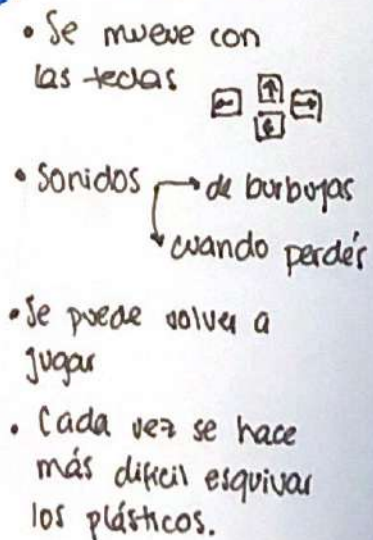 • Se mueve con
las teclas ← ↑ → ↓
• Sonidos → de burbujas
cuando perdés
• Se puede volver a
jugar
• Cada vez se hace
más dificil esquivar
los plásticos.